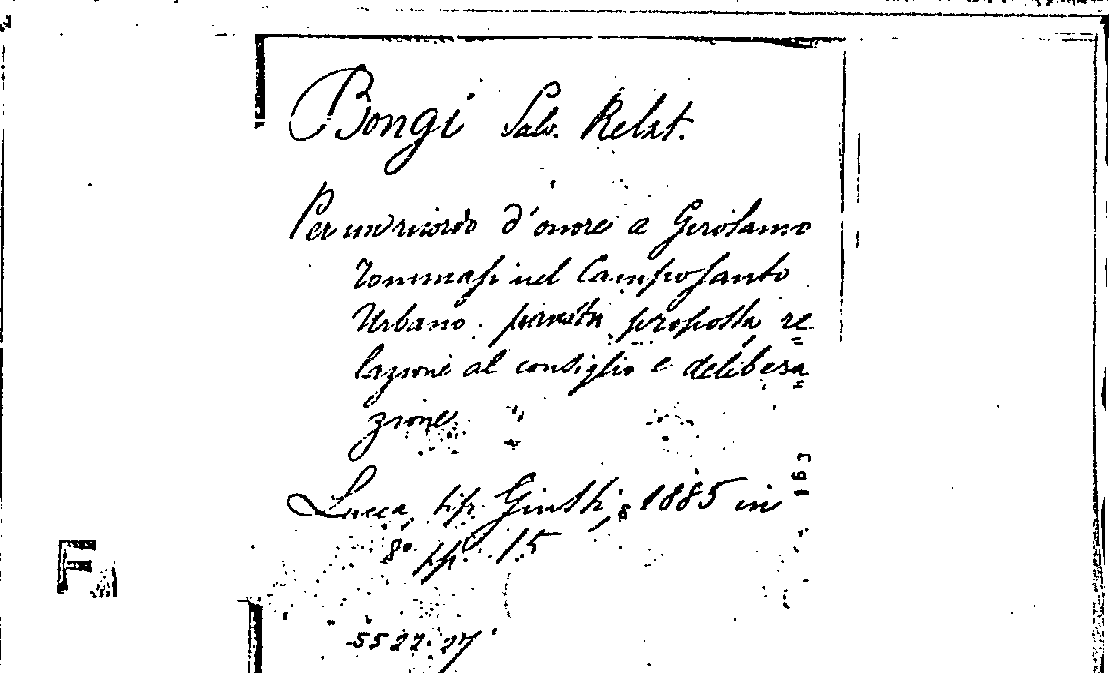 Bongi Salv. Relat.
Per un ricordo d'onore a Girolamo
Tommasi nel Camposanto
Urbano. proposta re=
lazione al consiglio e delibera=
zione
Lucca, tip. Giusti, 1885 in
8° pp. 15
5522.27
163
F